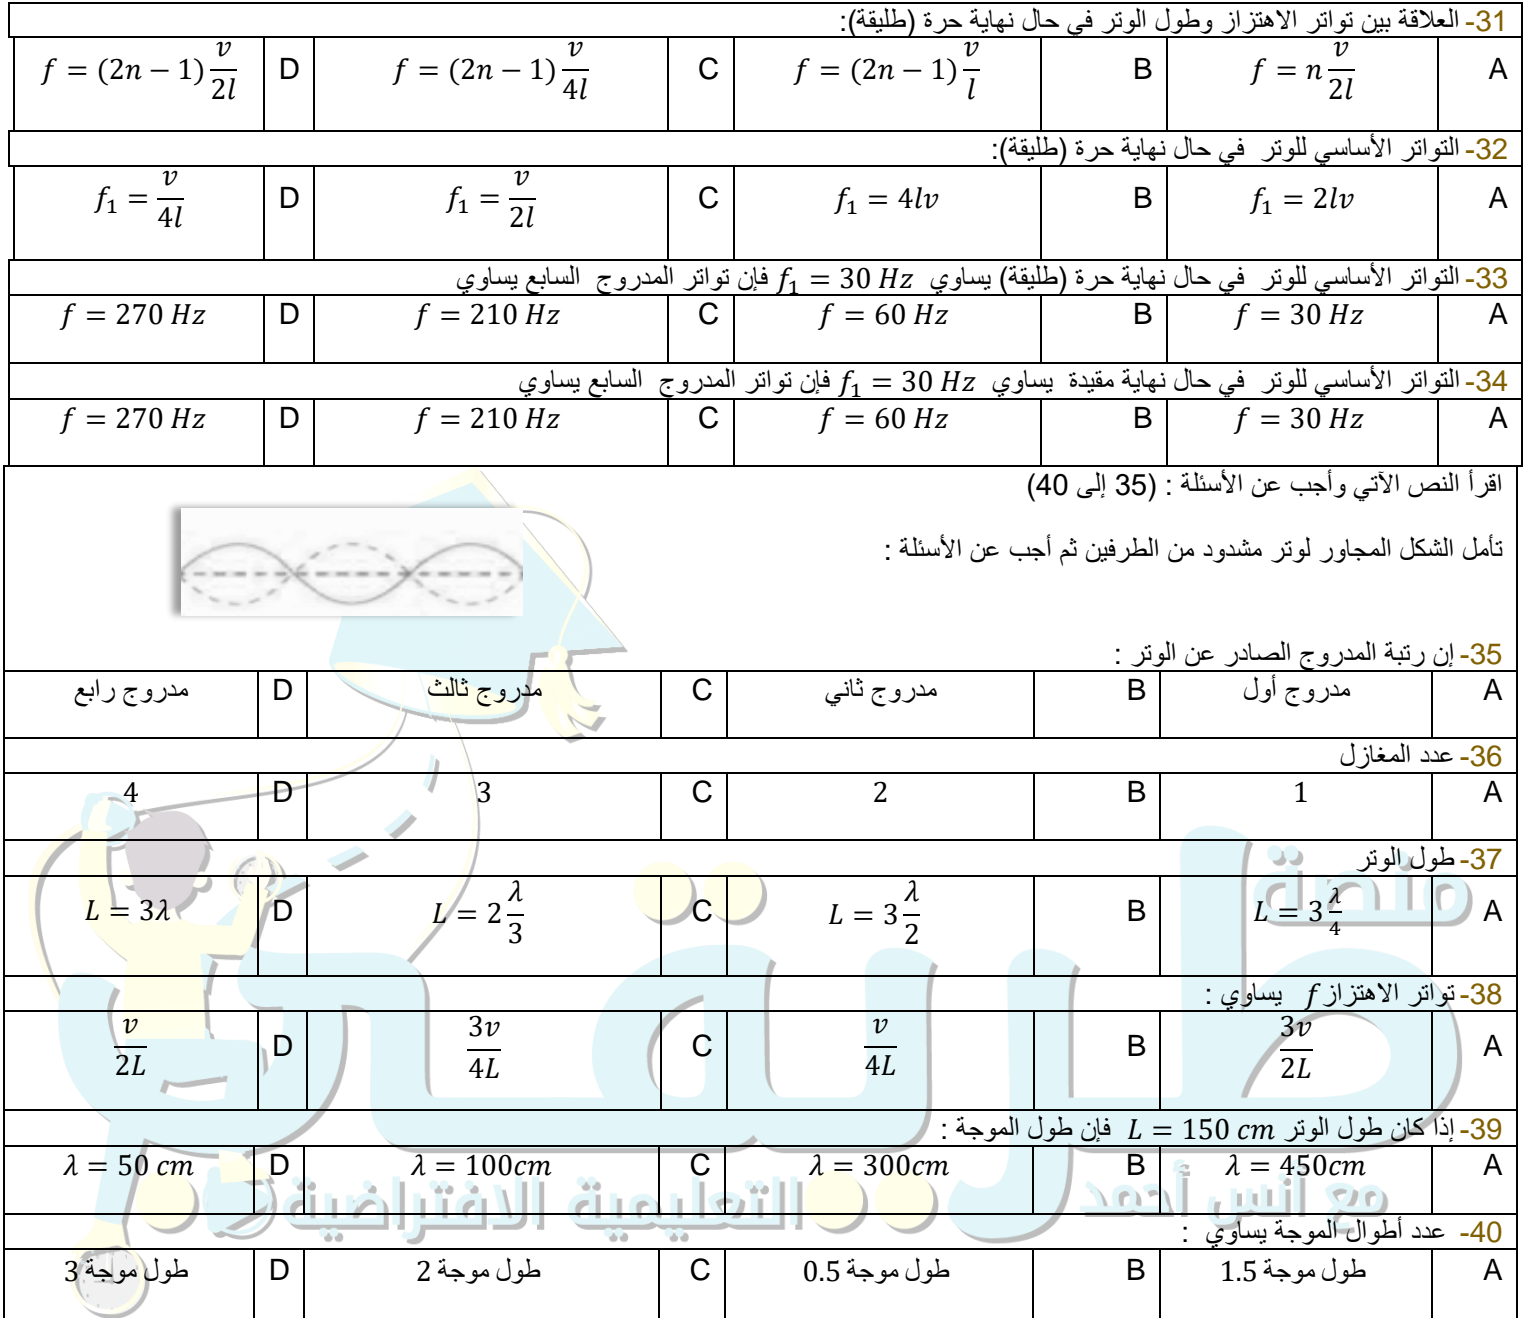 31- العلاقة بين تواتر الاهتزاز وطول الوتر في حال نهاية حرة (طليقة):
A f = n v/2l B f = (2n − 1) v/l C f = (2n − 1) v/4l D f = (2n − 1) v/2l
32- التواتر الأساسي للوتر في حال نهاية حرة (طليقة):
A f₁ = 2lv B f₁ = 4lv C f₁ = v/2l D f₁ = v/4l
33- التواتر الأساسي للوتر في حال نهاية حرة (طليقة) يساوي f₁ = 30 Hz فإن تواتر المدروج السابع يساوي
A f = 30 Hz B f = 60 Hz C f = 210 Hz D f = 270 Hz
34- التواتر الأساسي للوتر في حال نهاية مقيدة يساوي f₁ = 30 Hz فإن تواتر المدروج السابع يساوي
A f = 30 Hz B f = 60 Hz C f = 210 Hz D f = 270 Hz
اقرأ النص الآتي وأجب عن الأسئلة : (35 إلى 40)
تأمل الشكل المجاور لوتر مشدود من الطرفين ثم أجب عن الأسئلة :
35- إن رتبة المدروج الصادر عن الوتر :
A مدروج أول B مدروج ثاني C مدروج ثالث D مدروج رابع
36- عدد المغازل
A 1 B 2 C 3 D 4
37- طول الوتر
A L = 3 λ/4 B L = 3 λ/2 C L = 2 λ/3 D L = 3λ
38- تواتر الاهتزاز f يساوي :
A 3v/2L B v/4L C 3v/4L D v/2L
39- إذا كان طول الوتر L = 150 cm فإن طول الموجة :
A λ = 450cm B λ = 300cm C λ = 100cm D λ = 50 cm
40- عدد أطوال الموجة يساوي :
A طول موجة 1.5 B طول موجة 0.5 C طول موجة 2 D طول موجة 3
منصة
طريقي
مع أنس أحمد
التعليمية الافتراضية